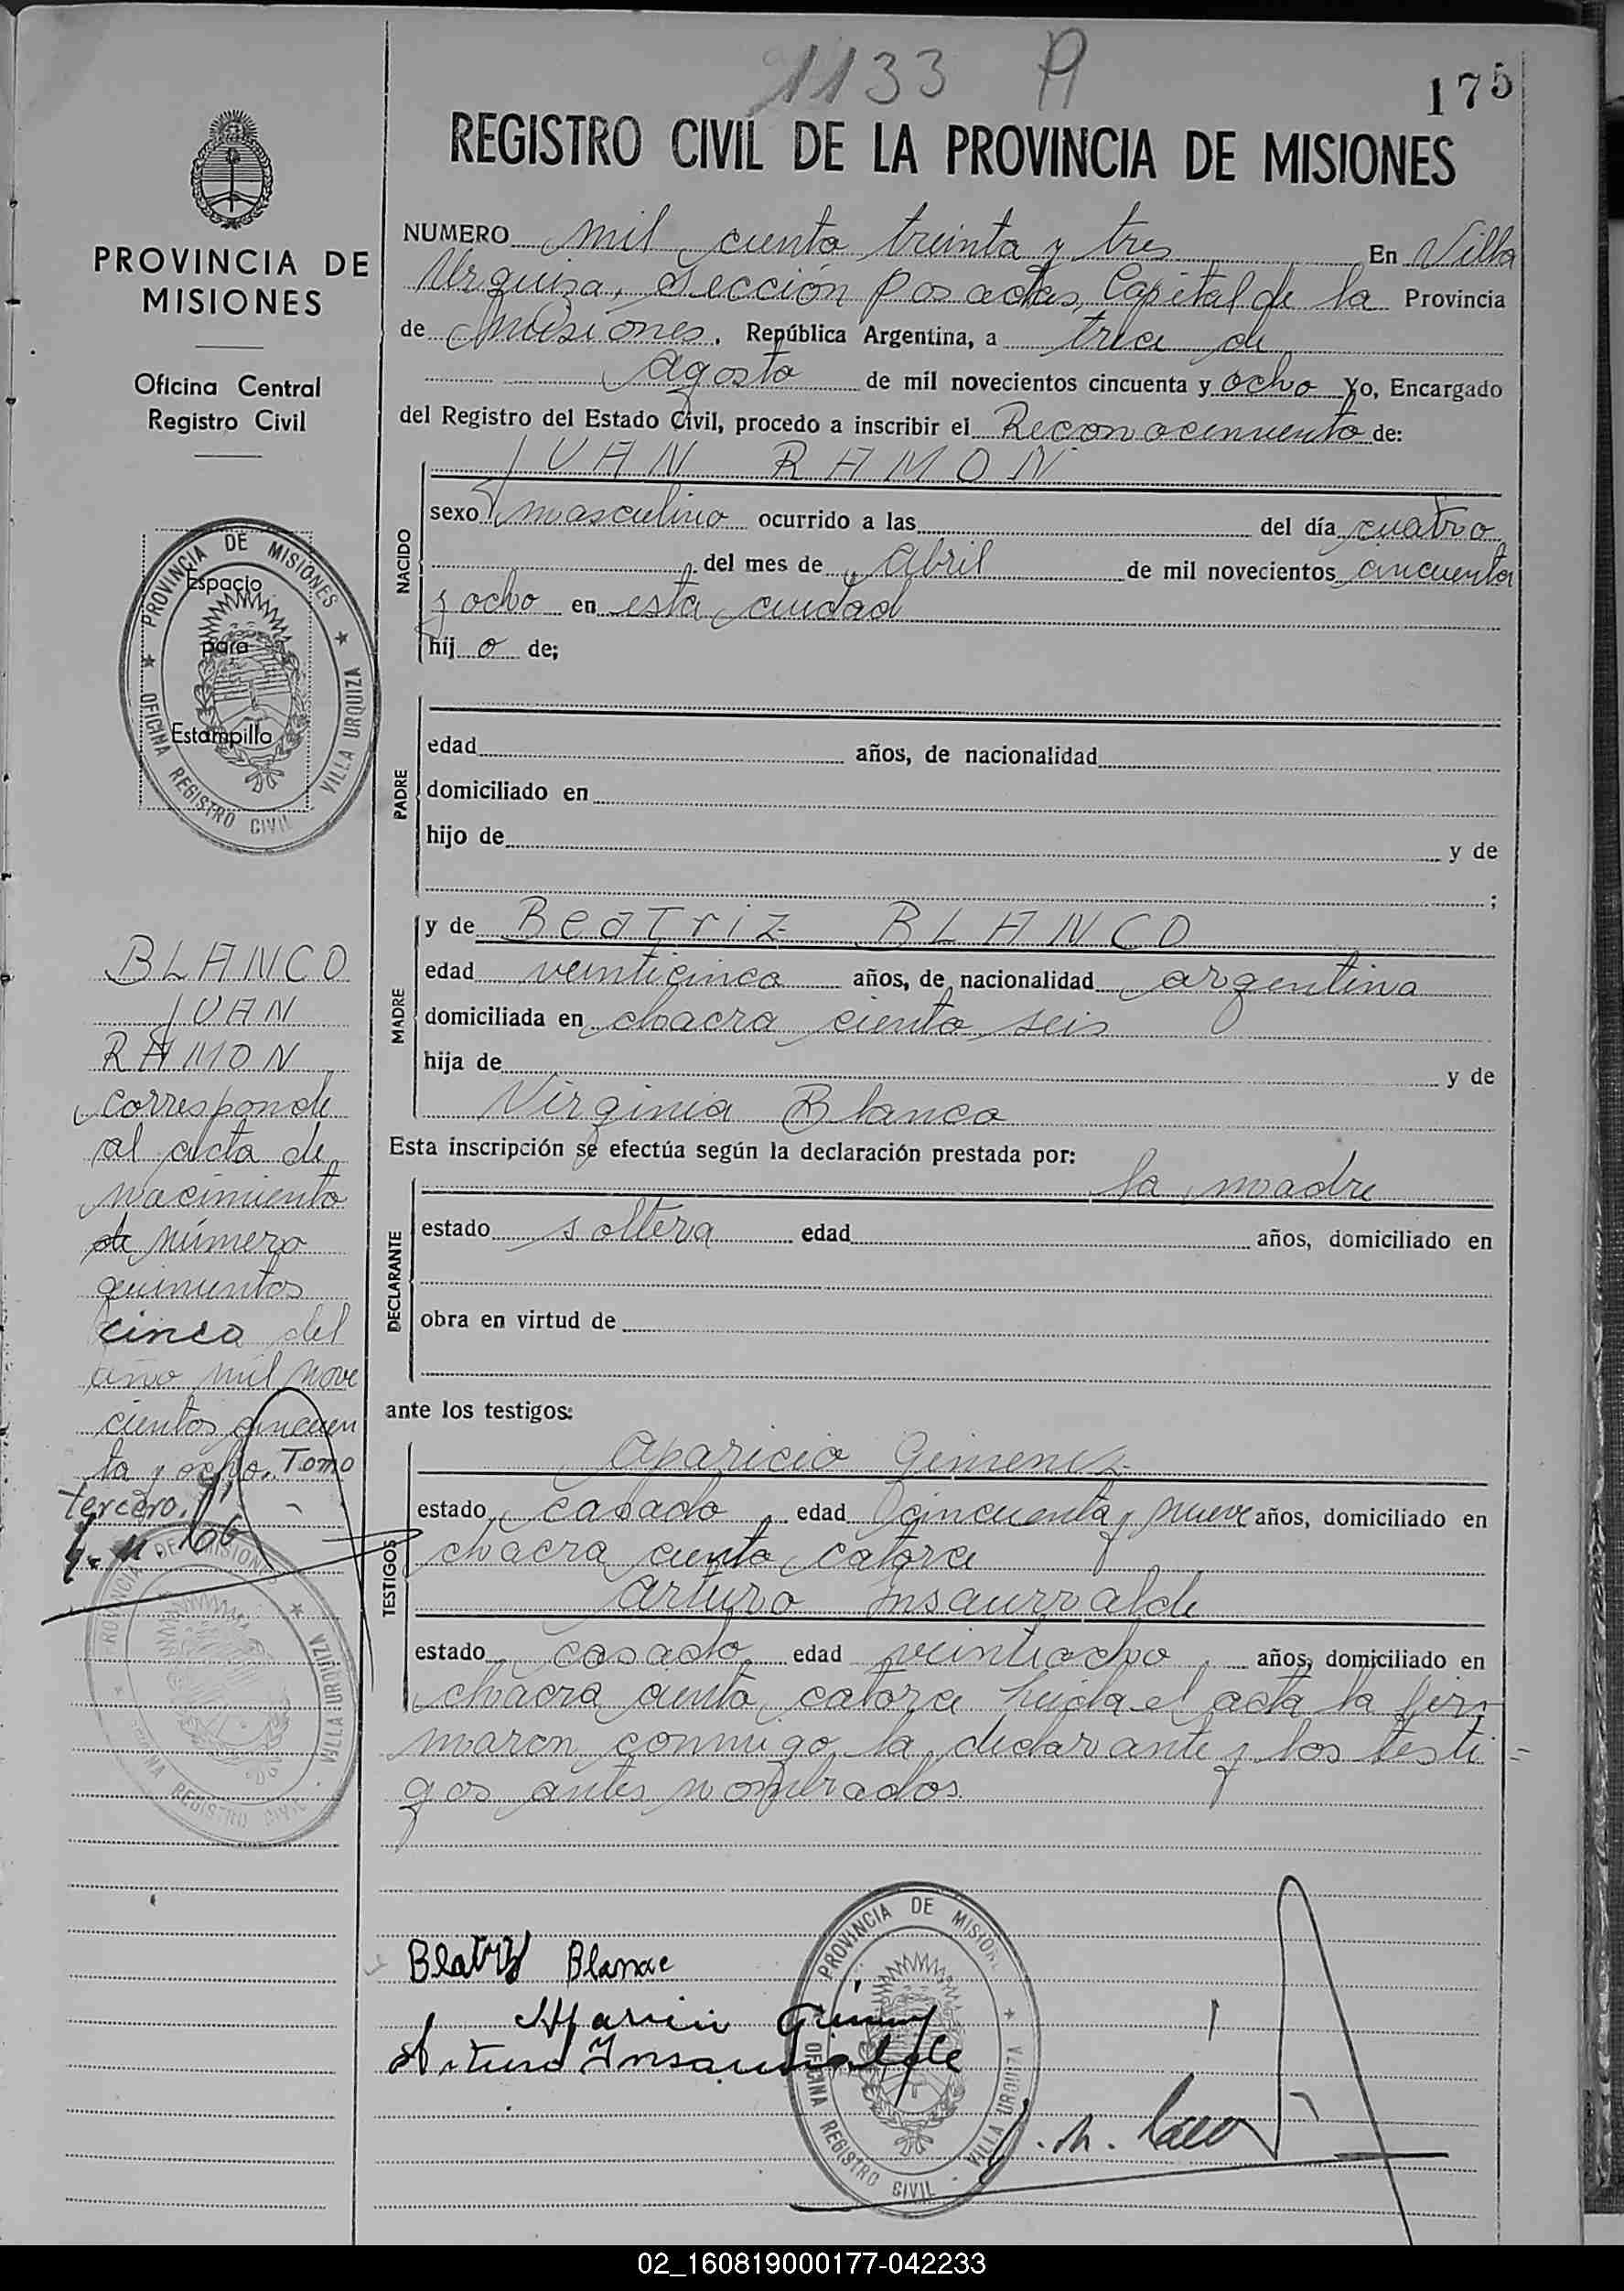 1133 A
175
REGISTRO CIVIL DE LA PROVINCIA DE MISIONES
PROVINCIA DE
MISIONES
Oficina Central
Registro Civil
PROVINCIA DE MISIONES
Espacio
para
Estampilla
OFICINA REGISTRO CIVIL
VILLA URQUIZA
BLANCO
JUAN
RAMON
corresponde
al acta de
nacimiento
de número
quinientos
cinco del
año mil nove
cientos cincuen
ta y ocho. Tomo
tercero.
PROVINCIA DE MISIONES
VILLA URQUIZA
OFICINA REGISTRO CIVIL
NUMERO mil ciento treinta y tres En Villa
Urquiza, Sección Posadas, Capital de la Provincia
de Misiones. República Argentina, a trece de
agosto de mil novecientos cincuenta y ocho Yo, Encargado
del Registro del Estado Civil, procedo a inscribir el Reconocimiento de:
NACIDO
JUAN RAMON
sexo masculino ocurrido a las del día cuatro
del mes de Abril de mil novecientos cincuenta
y ocho en esta ciudad
hijo de;
PADRE
edad años, de nacionalidad
domiciliado en
hijo de y de
;
MADRE
y de Beatriz BLANCO
edad veinticinco años, de nacionalidad argentina
domiciliada en chacra ciento seis
hija de y de
Virginia Blanco
Esta inscripción se efectúa según la declaración prestada por:
DECLARANTE
la madre
estado soltera edad años, domiciliado en
obra en virtud de
ante los testigos:
TESTIGOS
Aparicio Gimenez
estado casado edad cincuenta y nueve años, domiciliado en
chacra ciento catorce
Arturo Insaurralde
estado casado edad veintiocho años, domiciliado en
chacra ciento catorce leida el acta la fir
maron conmigo la declarante y los testi =
gos antes nombrados.
Beatriz Blanco
Aparicio Gimenez
Arturo Insaurralde
PROVINCIA DE MISIONES
OFICINA REGISTRO CIVIL
VILLA URQUIZA
02_160819000177-042233